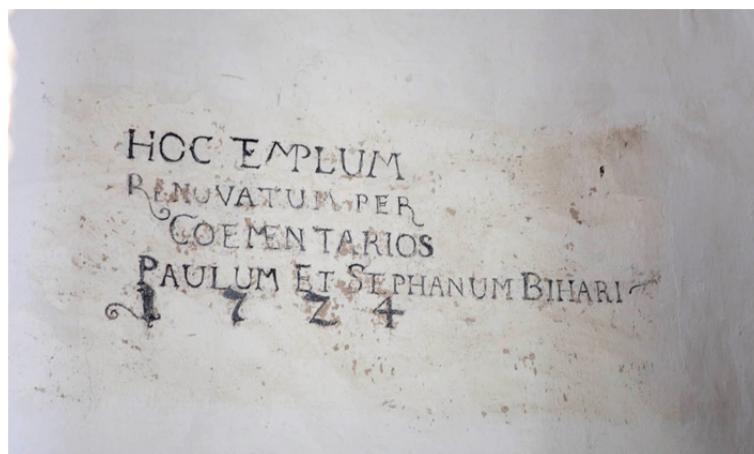 HOC TEMPLUM
RENOVATUM PER
COEMENTARIOS
PAULUM ET STEPHANUM BIHARI
1724